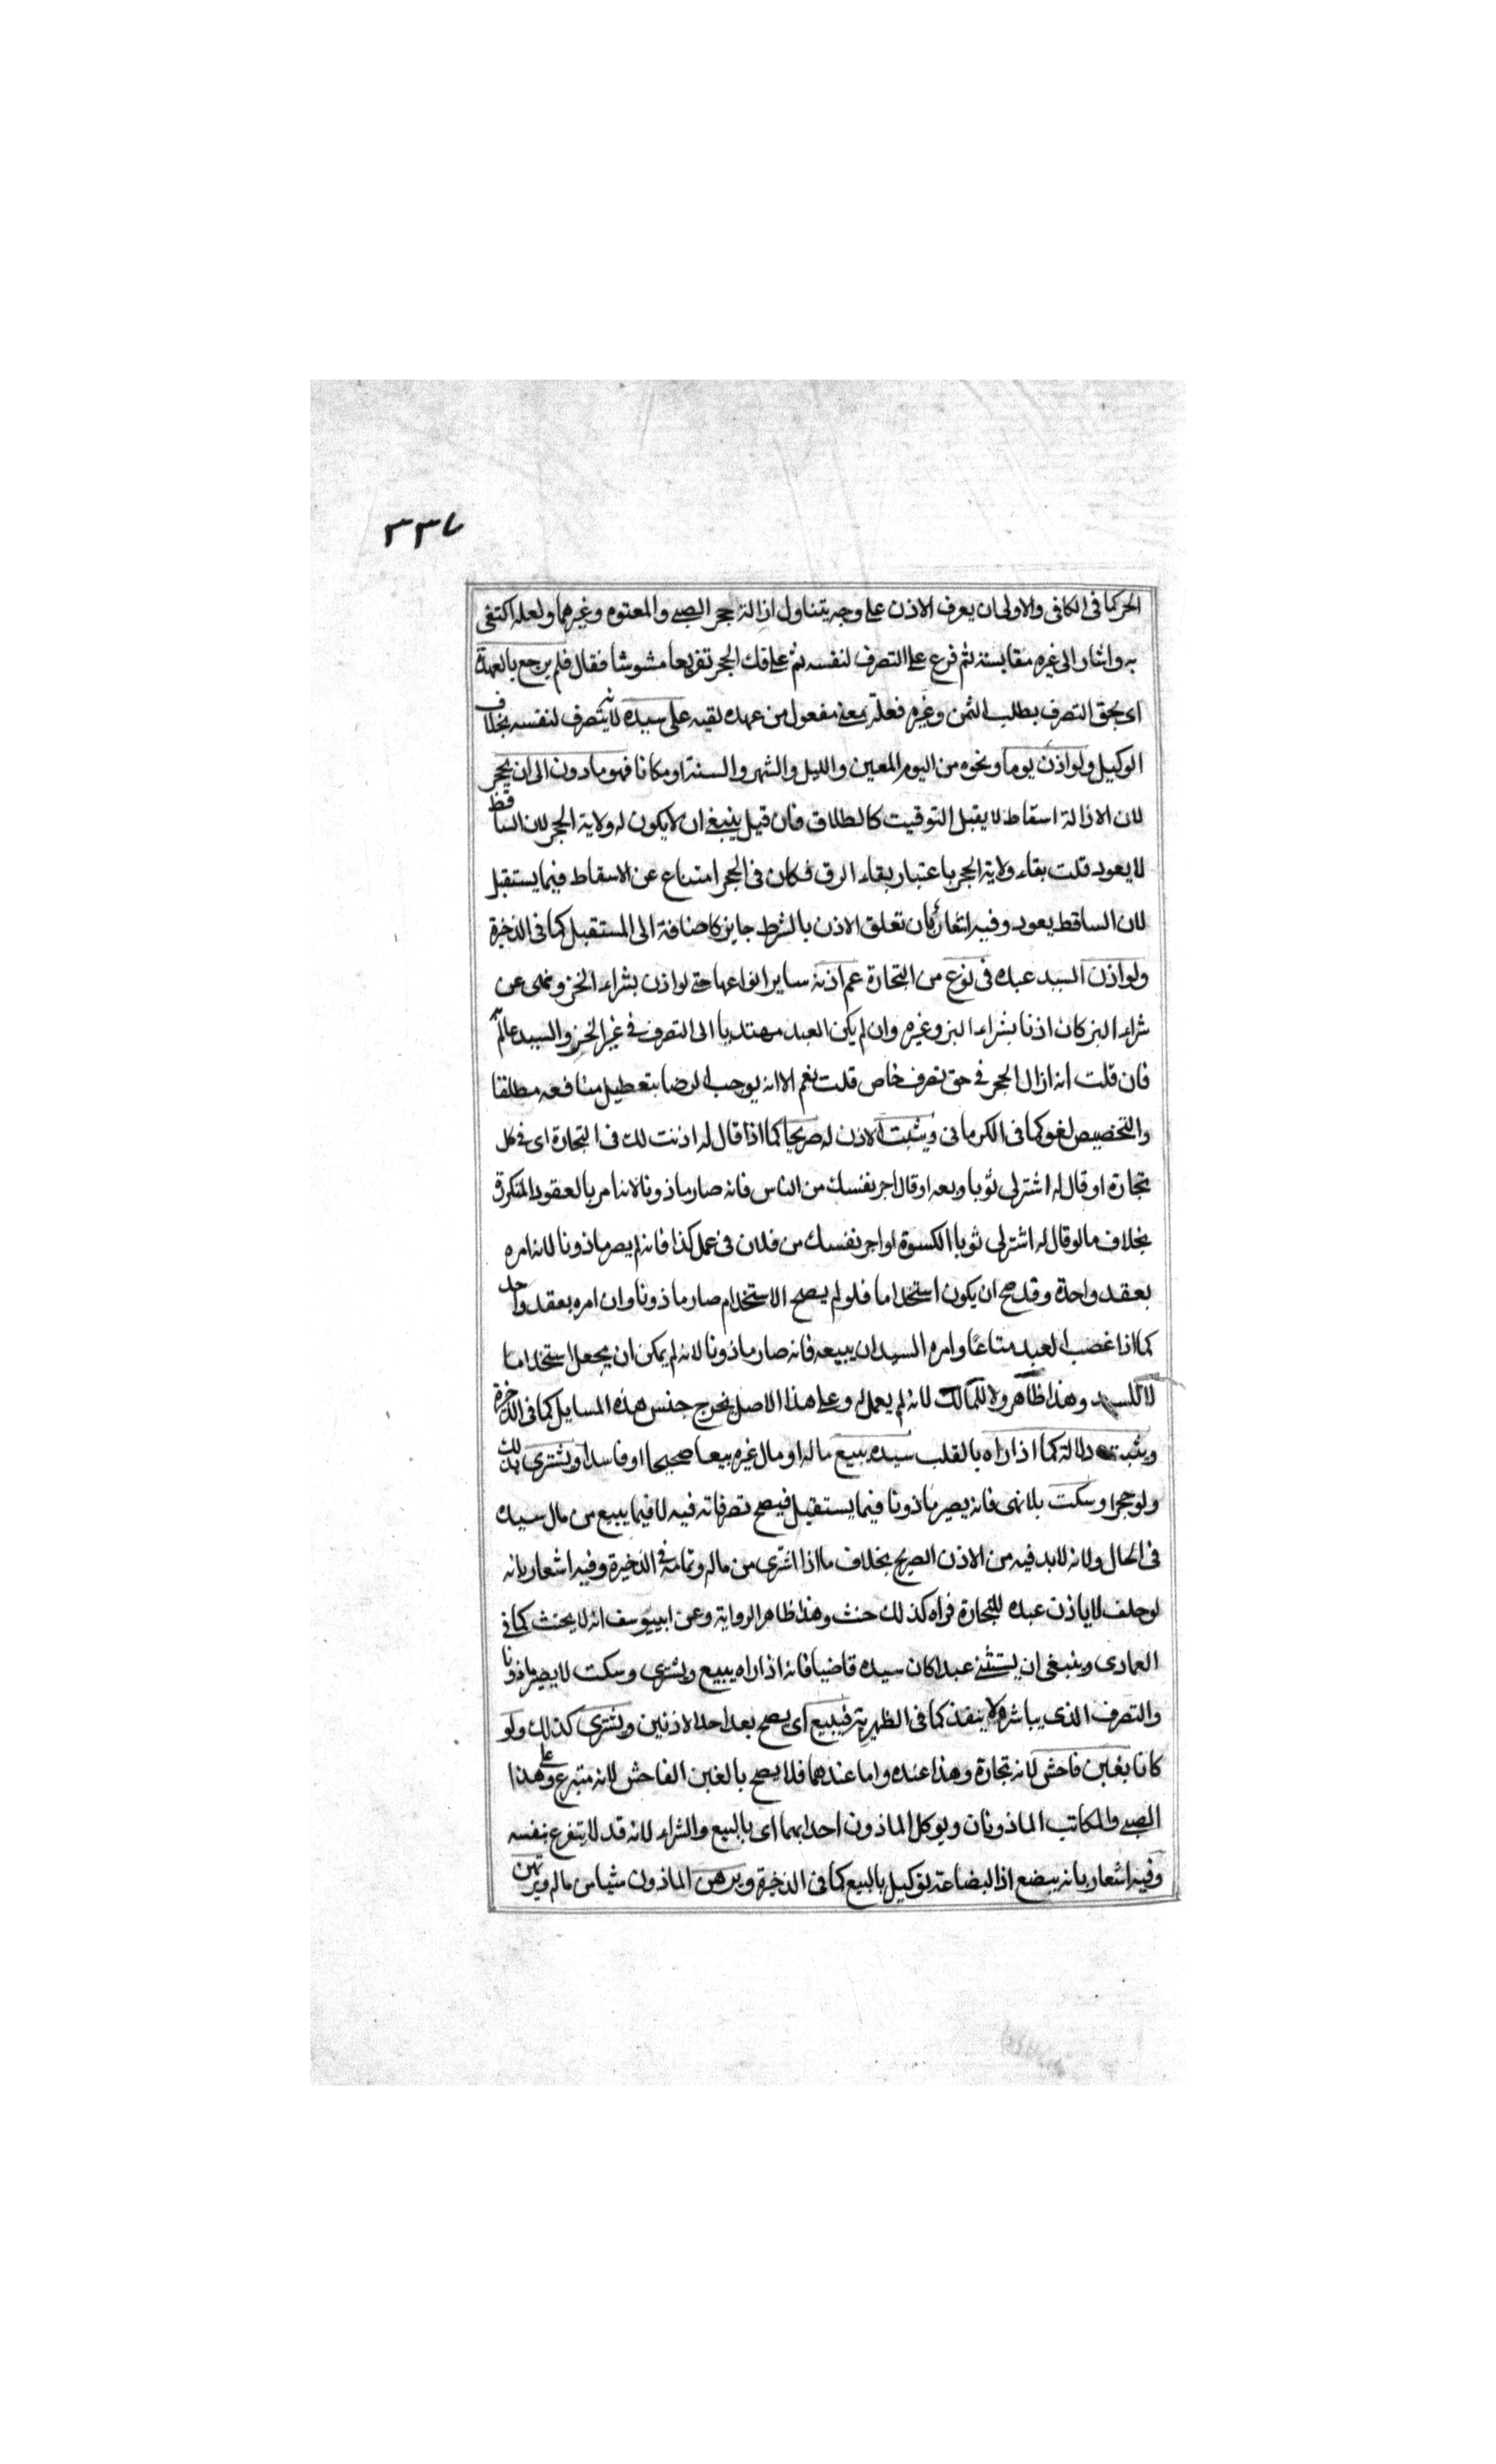 ٣٣٧
الحر كما فى الكافى والاولى ان يعرف الاذن على وجه يتناول ازالة حجر الصبى والمعتوه وغيرهما ولعله اكتفى
به واشار الى غيره مقايسة ثم فرع على التصرف لنفسه ثم على فك الحجر تفريعا مشوشا فقال فلم يرجع بالعهدة
اى بحق التصرف بطلب الثمن وغيره فعلة بمعنى مفعول من عهده لقيه على سيده لانه يتصرف لنفسه بخلاف
الوكيل ولو اذن يوما ونحوه من اليوم المعين والليل والشهر والسنة او مكانا فهو مادون الى ان يحجر
لان الازالة اسقاط لا يقبل التوقيت كالطلاق فان قيل ينبغى ان لا يكون له ولاية الحجر لان الساقط
لا يعود قلت بقاء ولاية الحجر باعتبار بقاء الرق فكان فى الحجر امتناع عن الاسقاط فيما يستقبل
لان الساقط يعود وفيه اشعار بان تعلق الاذن بالشرط جايز كاضافة الى المستقبل كما فى الذخيرة
ولو اذن السيد عبده فى نوع من التجارة عم اذنه ساير انواعها حتى لو اذن بشراء الخز ونهى عن
شراء البز كان اذنا بشراء البز وغيره وان لم يكن العبد مهتديا الى التصرف فى غير الخز والسيد عالم
فان قلت انه ازال الحجر فى حق تصرف خاص قلت نعم الا انه يوجب الرضا بتعطيل منافعه مطلقا
والتخصيص لغو كما فى الكرمانى ويثبت الاذن له صريحا كما اذا قال له اذنت لك فى التجارة اى فى كل
تجارة او قال له اشتر لى ثوبا وبعه او قال اجر نفسك من الناس فانه صار ماذونا لانه امر بالعقود المتكررة
بخلاف ما لو قال له اشتر لى ثوبا الكسوة او اجر نفسك من فلان فى عمل كذا فانه لم يصر ماذونا لانه امره
بعقد واحدة وقد صح ان يكون استخداما فلو لم يصح الاستخدام صار ماذونا وان امره بعقد واحد
كما اذا غضب العبد متاعًا وامره السيد ان يبيعه فانه صار ماذونا لانه لم يمكن ان يجعل استخداما
لا للسيد وهذا ظاهر ولا للمالك لانه لم يعمل له وعلى هذا الاصل يخرج جنس هذه المسايل كما فى الذخيرة
ويثبت دلالة كما اذا راه بالقلب سيده يبيع ماله او مال غيره بيعا صحيحا او فاسدا ويشترى كذلك
ولو حجرا وسكت بلا نهى فانه يصير ماذونا فيما يستقبل فيصح تصرفاته فيه لا فيما يبيع من مال سيده
فى الحال ولانه لا بد فيه من الاذن الصريح بخلاف ما اذا اشترى من ماله وتمامه فى الذخيرة وفيه اشعار بانه
لو حلف لا ياذن عبده للتجارة فراه كذلك حنث وهذا ظاهر الرواية وعن ابييوسف انه لا يحنث كما فى
العمادى وينبغى ان يستثنى عبدا كان سيده قاضيا فانه اذا راه يبيع ويشترى وسكت لا يصير ماذونا
والتصرف الذى يباشره لا ينفذ كما فى الظهيرية فيبيع اى يصح بعد احد الاذنين ويشترى كذلك ولو
كانا بغبن فاحش لانه تجارة وهذا عنده واما عندهما فلا يصح بالغبن الفاحش لانه متبرع وعلى هذا
الصبى والمكاتب الماذونان ويوكل الماذون احدا بهما اى بالبيع والشراء لانه قد لا يتفرغ بنفسه
وفيه اشعار بانه يبضع اذ البضاعة توكيل بالبيع كما فى الذخيرة ويرهن الماذون شيا من ماله ويرتهن